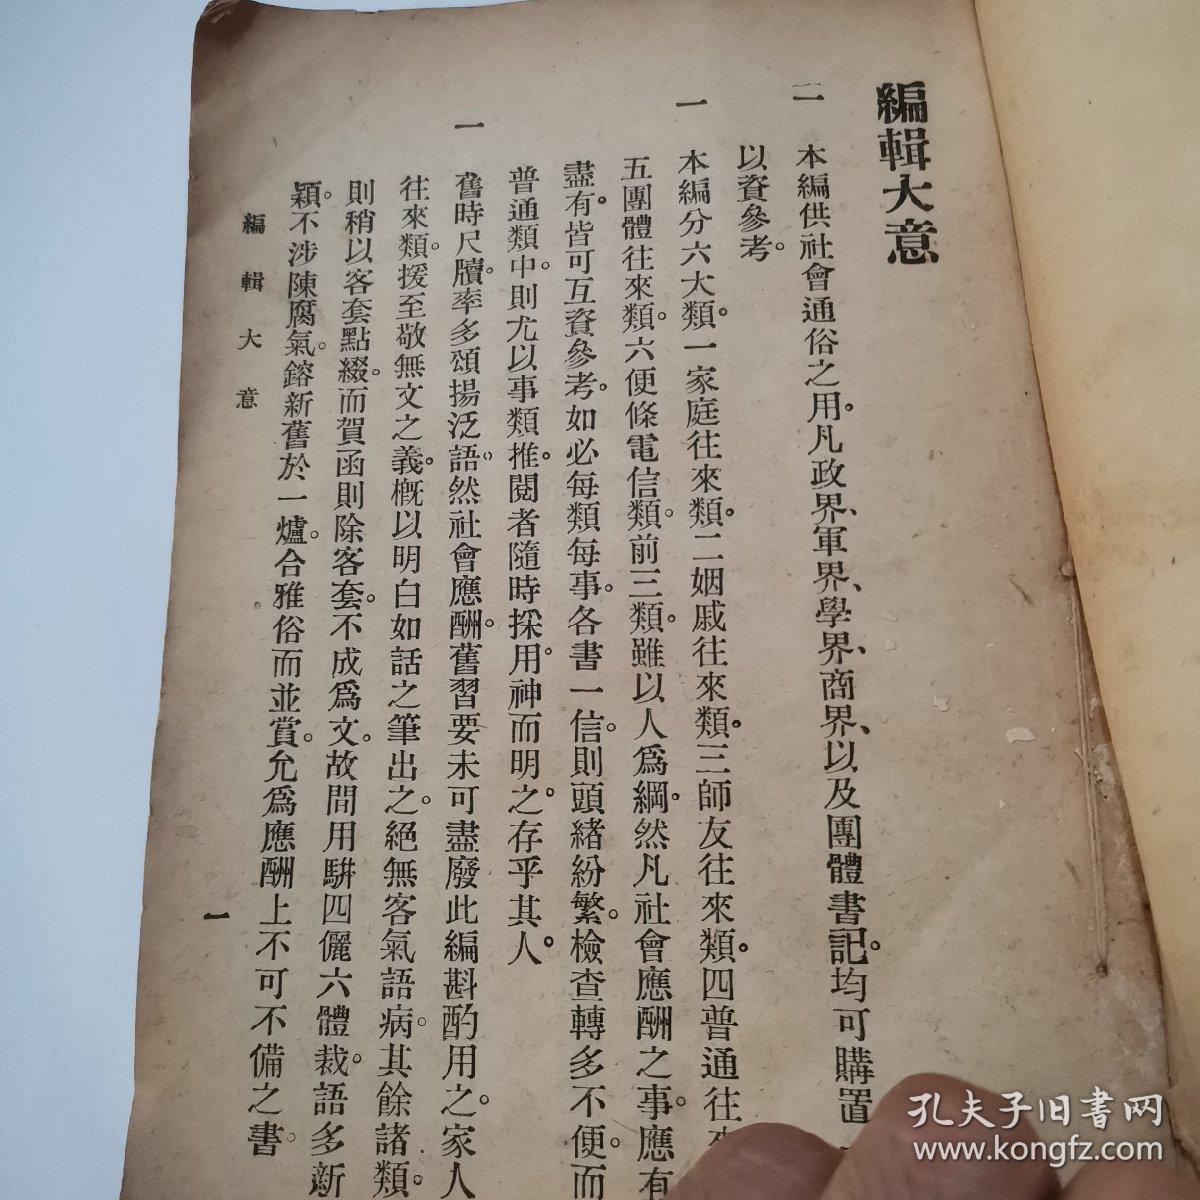 編輯大意
一 本編供社會通俗之用。凡政界、軍界、學界、商界、以及團體書記。均可購置
以資參考。
一 本編分六大類。一家庭往來類。二姻戚往來類。三師友往來類。四普通往
五團體往來類。六便條電信類。前三類。雖以人爲綱。然凡社會應酬之事。應有
盡有。皆可互資參考。如必每類每事。各書一信。則頭緒紛繁。檢查轉多不便。而
普通類中。則尤以事類推。閱者隨時採用。神而明之。存乎其人。
一 舊時尺牘。率多頌揚泛語。然社會應酬。舊習要未可盡廢。此編斟酌用之。家人
往來類。援至敬無文之義。槪以明白如話之筆出之。絕無客氣語病。其餘諸類。
則稍以客套點綴。而賀函則除客套。不成爲文。故間用駢四儷六體裁。語多新
穎。不涉陳腐氣。鎔新舊於一爐。合雅俗而並賞。允爲應酬上不可不備之書。
編輯大意
一
孔夫子旧书网
www.kongfz.com